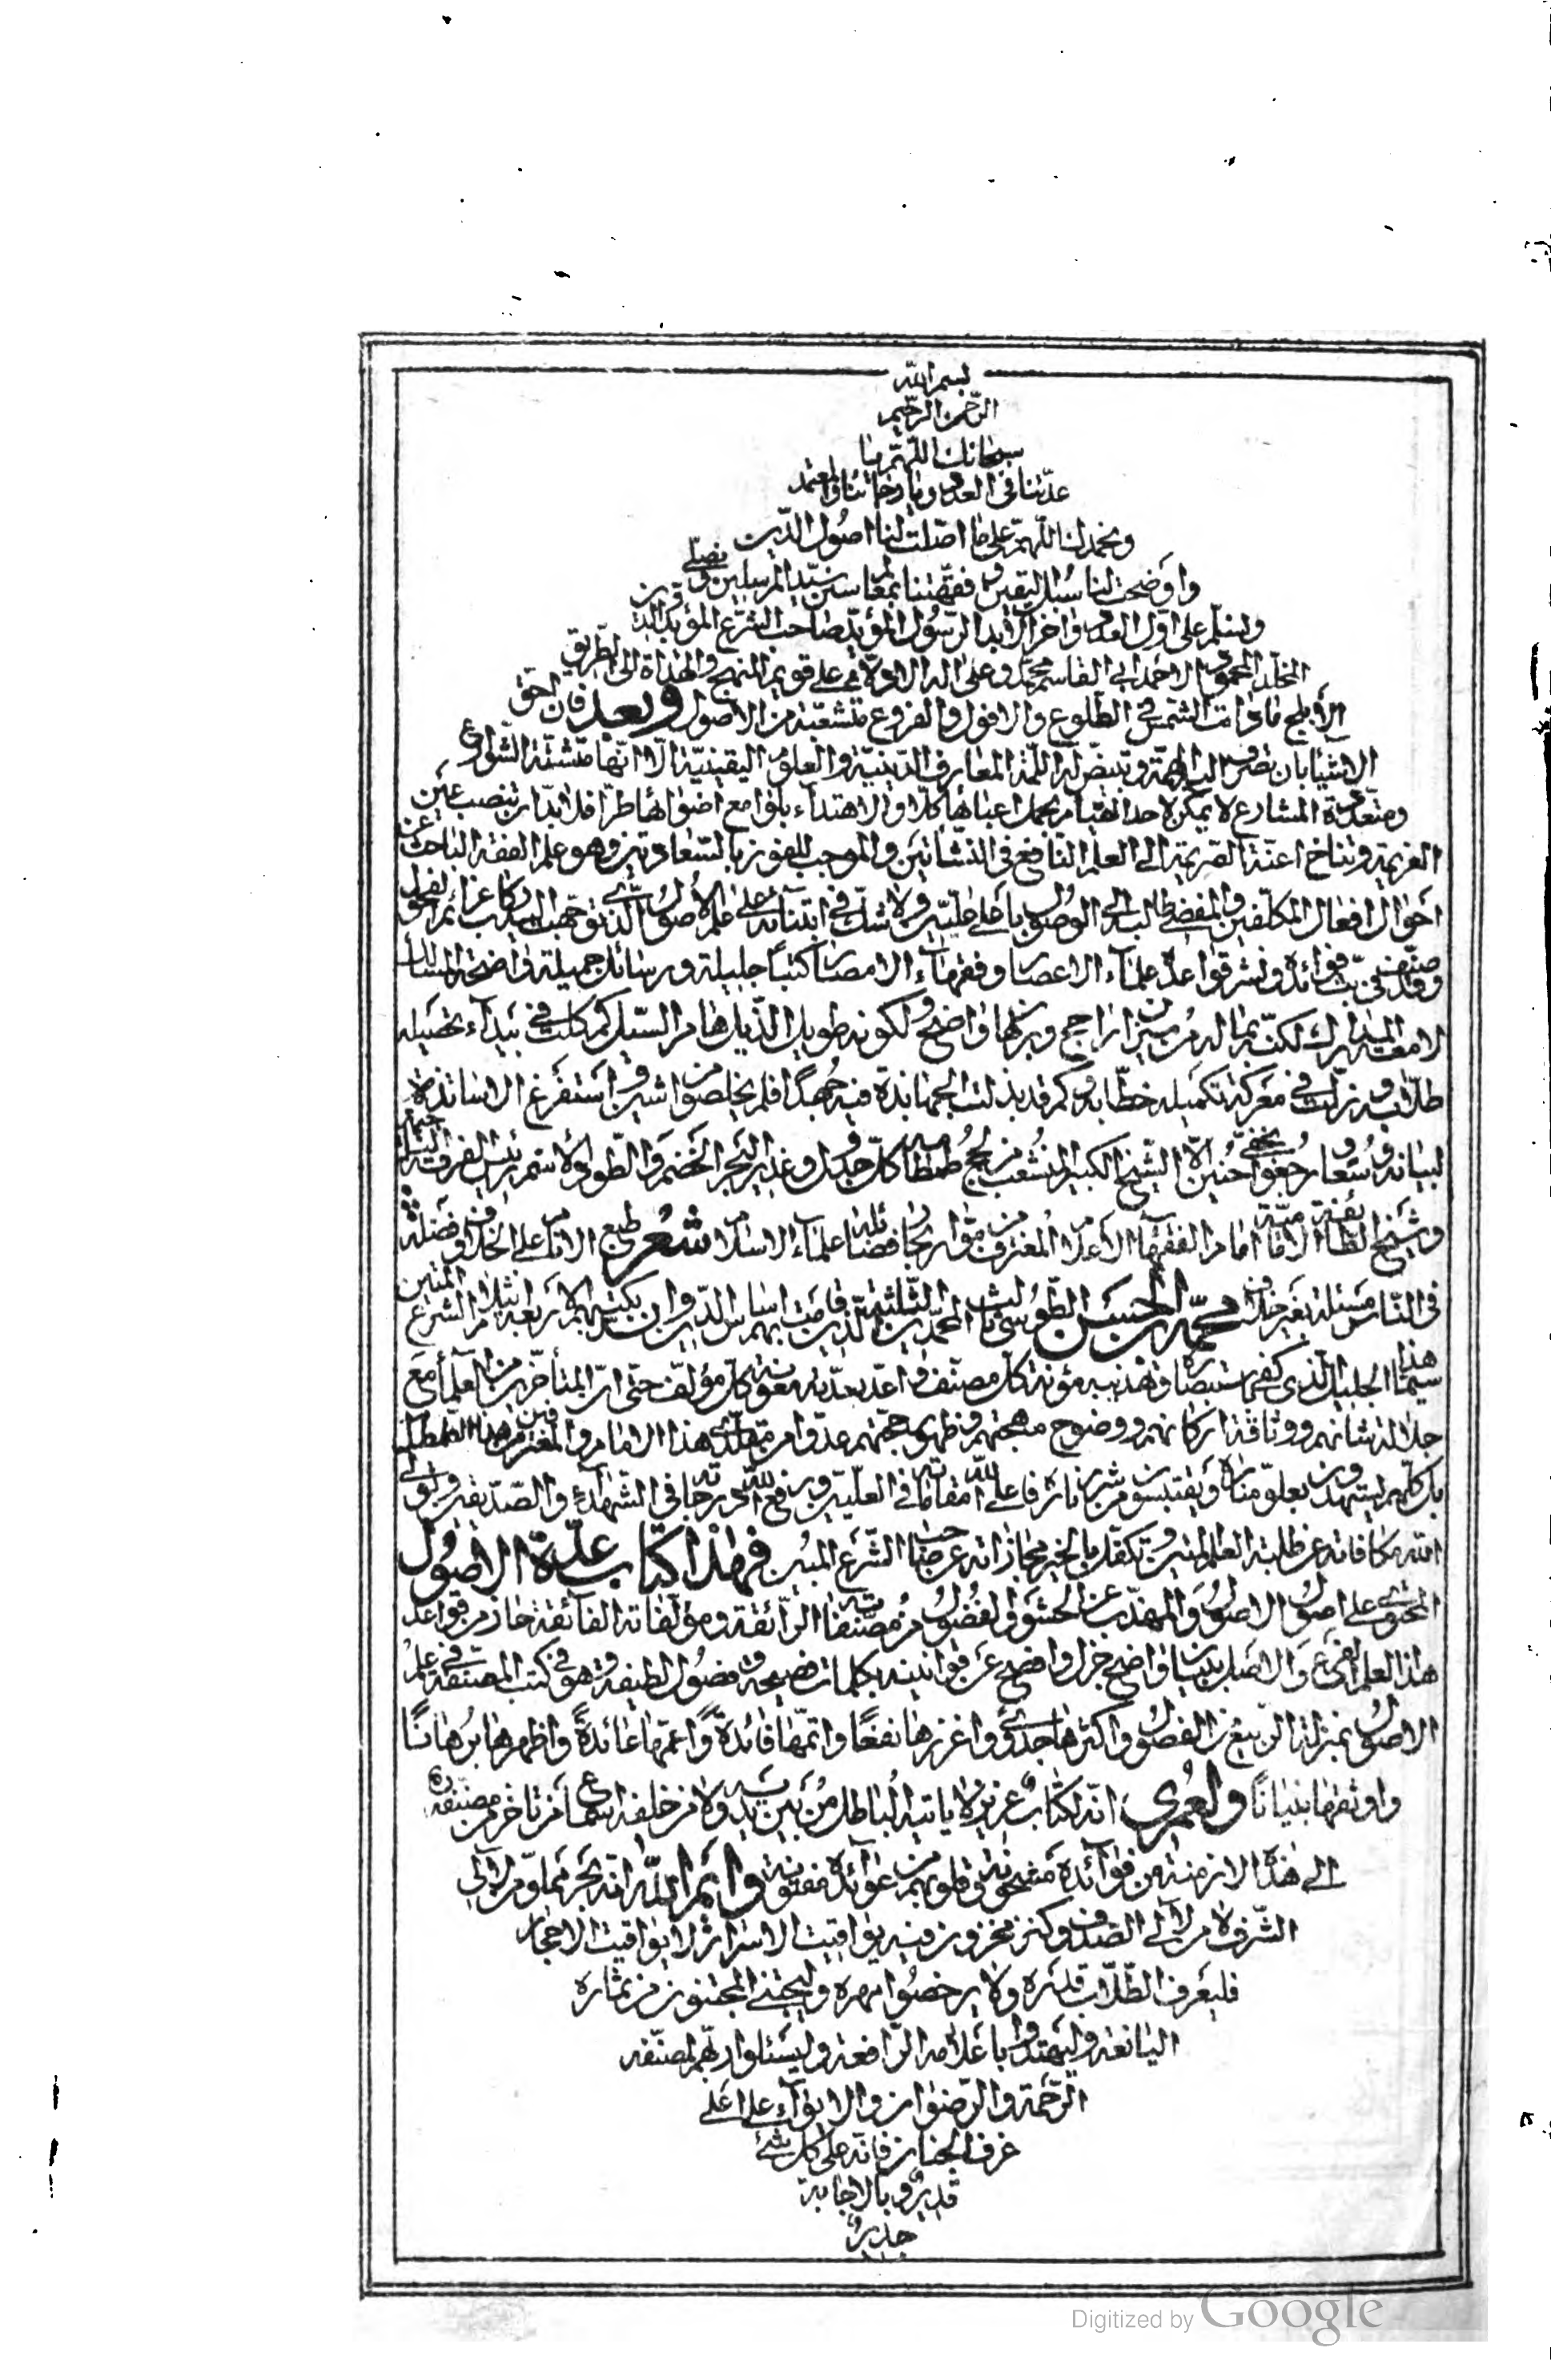 بسم الله
الرحمن الرحيم
سبحانك اللهم يا
عدتنا فى العدد ويا رجائنا والمعتمد
ونحمدك اللهم على ما اصلت لنا اصول الدين
واوضحت لنا سبل اليقين وفقهتنا بمعالم سنن سيد المرسلين ونصلى
ونسلم على اول العدد واخر الابد الرسول المؤيد صاحب الشرع المؤبد والدين
المخلد المحمود الاحمد ابى القاسم محمد وعلى اله الادلاء على قويم المنهج والهداة الى الطريق
الأبلج ما دامت الشمس فى الطلوع والافول والفروع متشعبة من الاصول وبعد فان احق
الاشياء بان تصرف اليه الهمة وتبيض له اللمة المعارف الدينية والعلوم اليقينية الا انها متشتتة الشوارع
ومتعددة المشارع لا يمكن لاحد القيام بحمل اعبائها كلا والاهتداء بلوامع اضوائها طرا فلابد ان تنصب عين
العزيمة وتناخ اعنة الصريمة الى العلم النافع فى النشأتين والموجب للفوز بالسعادتين وهو علم الفقه الباحث عن
احوال افعال المكلفين والمفضى طالبه الى الوصول باعلى عليين ولا شك فى ابتنائه على علم الاصول الذى توجهت اليه ركاب عزائم الفحول
وقد صنف فى بث فوائده ونشر قواعده علماء الاعصار وفقهاء الامصار كتبا جليلة ورسائل جميلة واضحة المسالك
لامعة المدارك لكنه بما له من ميزان راجح وبرهان واضح ولكونه طويل الذيل هامر السيل كم كلت فى بيداء تحصيله
طلابه وزلت فى معركة تكميله خطابه وكم قد بذلت الجهابذة فيه جهدا فلم يخلصوا من اشير واستفرغ الاساتذة
لبيانه وسعا ورجعوا بخفى حنين الا الشيخ الكبير المنشعب من لجج طمطامه كل جدول وغدير البحر الخضم والطود الاشم رئيس الفرقة الناجية
وشيخ الطائفة الامامية امام الفقهاء الاعلام المغترف من تيار بحار فضائله علماء الاسلام شعر طبع الانام على الخلاف وفضله
فى الناس مسئلة بغير خلاف محمد ابن الحسن الطوسى ثالث المحمدين الثلثة الذين قامت بهم اساس الدين وان بكتبهم الاربعة انتلام الشرع المتين
سيما هذا الجليل الذى كفى استبصاره وتهذيبه مؤنة كل مصنف واعد بعدته معونة كل مؤلف حتى ان المتأخرين من العلماء مع
جلالة شانهم ووثاقة اركانهم ووضوح مهجتهم وظهور حجتهم عدوا من مقلدى هذا الامام والمغترفين من هذا القمقام
بل كلهم ليستهدون بعلو مناره ويقتبسون من شرر ناره فاعلى الله مقاماته فى العليين ورفع الله درجاته فى الشهداء والصديقين وتولى
الله مكافاته عن طلبة العلم والدين وتكفل بالخير مجازاته عن صاحب الشرع المبين فهذا كتاب عدة الاصول
المحتوى على اصول الاصول والمهذب عن الحشو والفضول من مصنفاته الرائقة ومؤلفاته الفائقة حاز من قواعد
هذا العلم الفرع والاصل ببيان واضح جزل وافصح عن قوانينه بكلمات فصيحة وفصول لطيفة وهو فى كتب المصنفة فى علم
الاصول بمنزلة الربيع من الفصول واكثرها جدوى واغزرها نفعا واتمها فائدة واعمها عائدة واظهرها برهانا
واوثقها بنيانا ولعمرى انه لكتاب عزيز لا ياتيه الباطل من بين يديه ولا من خلفه اسماع من تاخر من مصنفه
الى هذه الازمنة من فوائده مشحونة وقلوبهم من عوائده مفتونة وايم الله انه بحر مملو من لآلى
الشرف لا من لآلى الصدف وكنز مخزون فيه يواقيت الاسرار لا يواقيت الاحجار
فليعرف الطلاب قدره ولا يرخصوا مهره وليجتنى المجتنون من ثماره
اليانعة وليهتدوا باعلامه الرافعة وليسئلوا ربهم لمصنفه
الرحمة والرضوان والايواء على اعلى
غرف الجنان فانه على كل شئ
قدير وبالاجابة
جدير
Digitized by Google